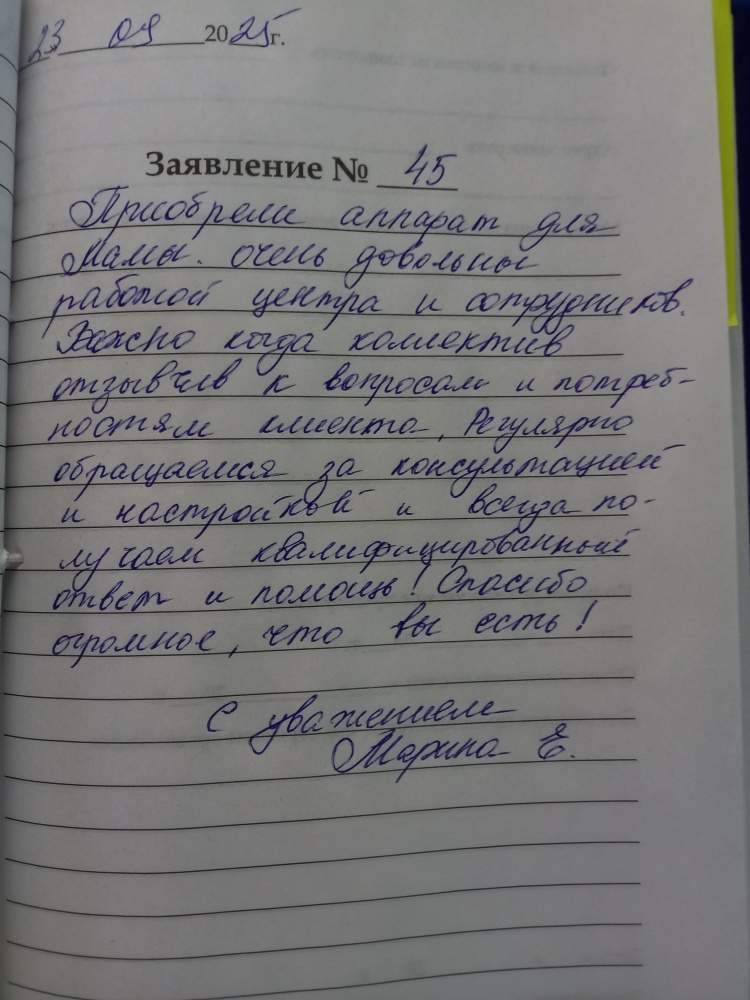 23 09 2025г.
Заявление № 45
Приобрели аппарат для
Мамы. очень довольны
работой центра и сотрудников.
Важно когда коллектив
отзывчив к вопросам и потреб-
ностям клиента. Регулярно
обращаемся за консультацией
и настройкой и всегда по-
лучаем квалифицированный
ответ и помощь! Спасибо
огромное, что вы есть!
С уважением
Марина Е.